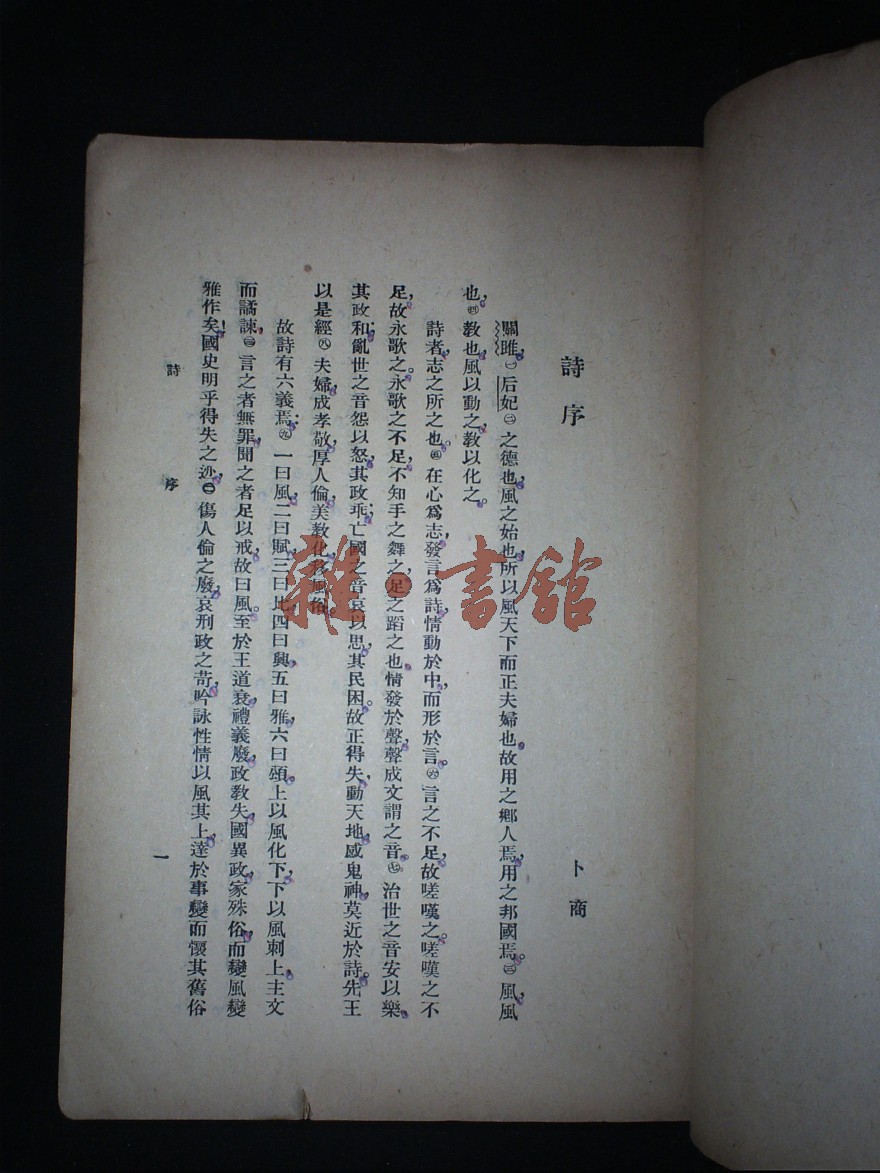 詩序
卜商
關雎，㊀后妃㊁之德也，風之始也，所以風天下而正夫婦也。故用之鄉人焉，用之邦國焉。㊂風，風
也，㊃教也，風以動之，教以化之。
詩者，志之所之也。㊄在心爲志，發言爲詩，情動於中，而形於言。㊅言之不足，故嗟嘆之，嗟嘆之不
足，故永歌之。永歌之不足，不知手之舞之，足之蹈之也，情發於聲，聲成文謂之音。㊆治世之音安以樂，
其政和；亂世之音怨以怒，其政乖；亡國之音哀以思，其民困。故正得失，動天地，感鬼神，莫近於詩。先王
以是經㊇夫婦，成孝敬，厚人倫，美教化，移風俗。
故詩有六義焉：㊈一曰風，二曰賦，三曰比，四曰興，五曰雅，六曰頌。上以風化下，下以風刺上，主文
而譎諫，言之者無罪，聞之者足以戒，故曰風。至於王道衰，禮義廢，政教失，國異政，家殊俗，而變風變
雅作矣！國史明乎得失之迹，傷人倫之廢，哀刑政之苛，吟詠性情以風其上，達於事變而懷其舊俗
詩序
一
雜·書館